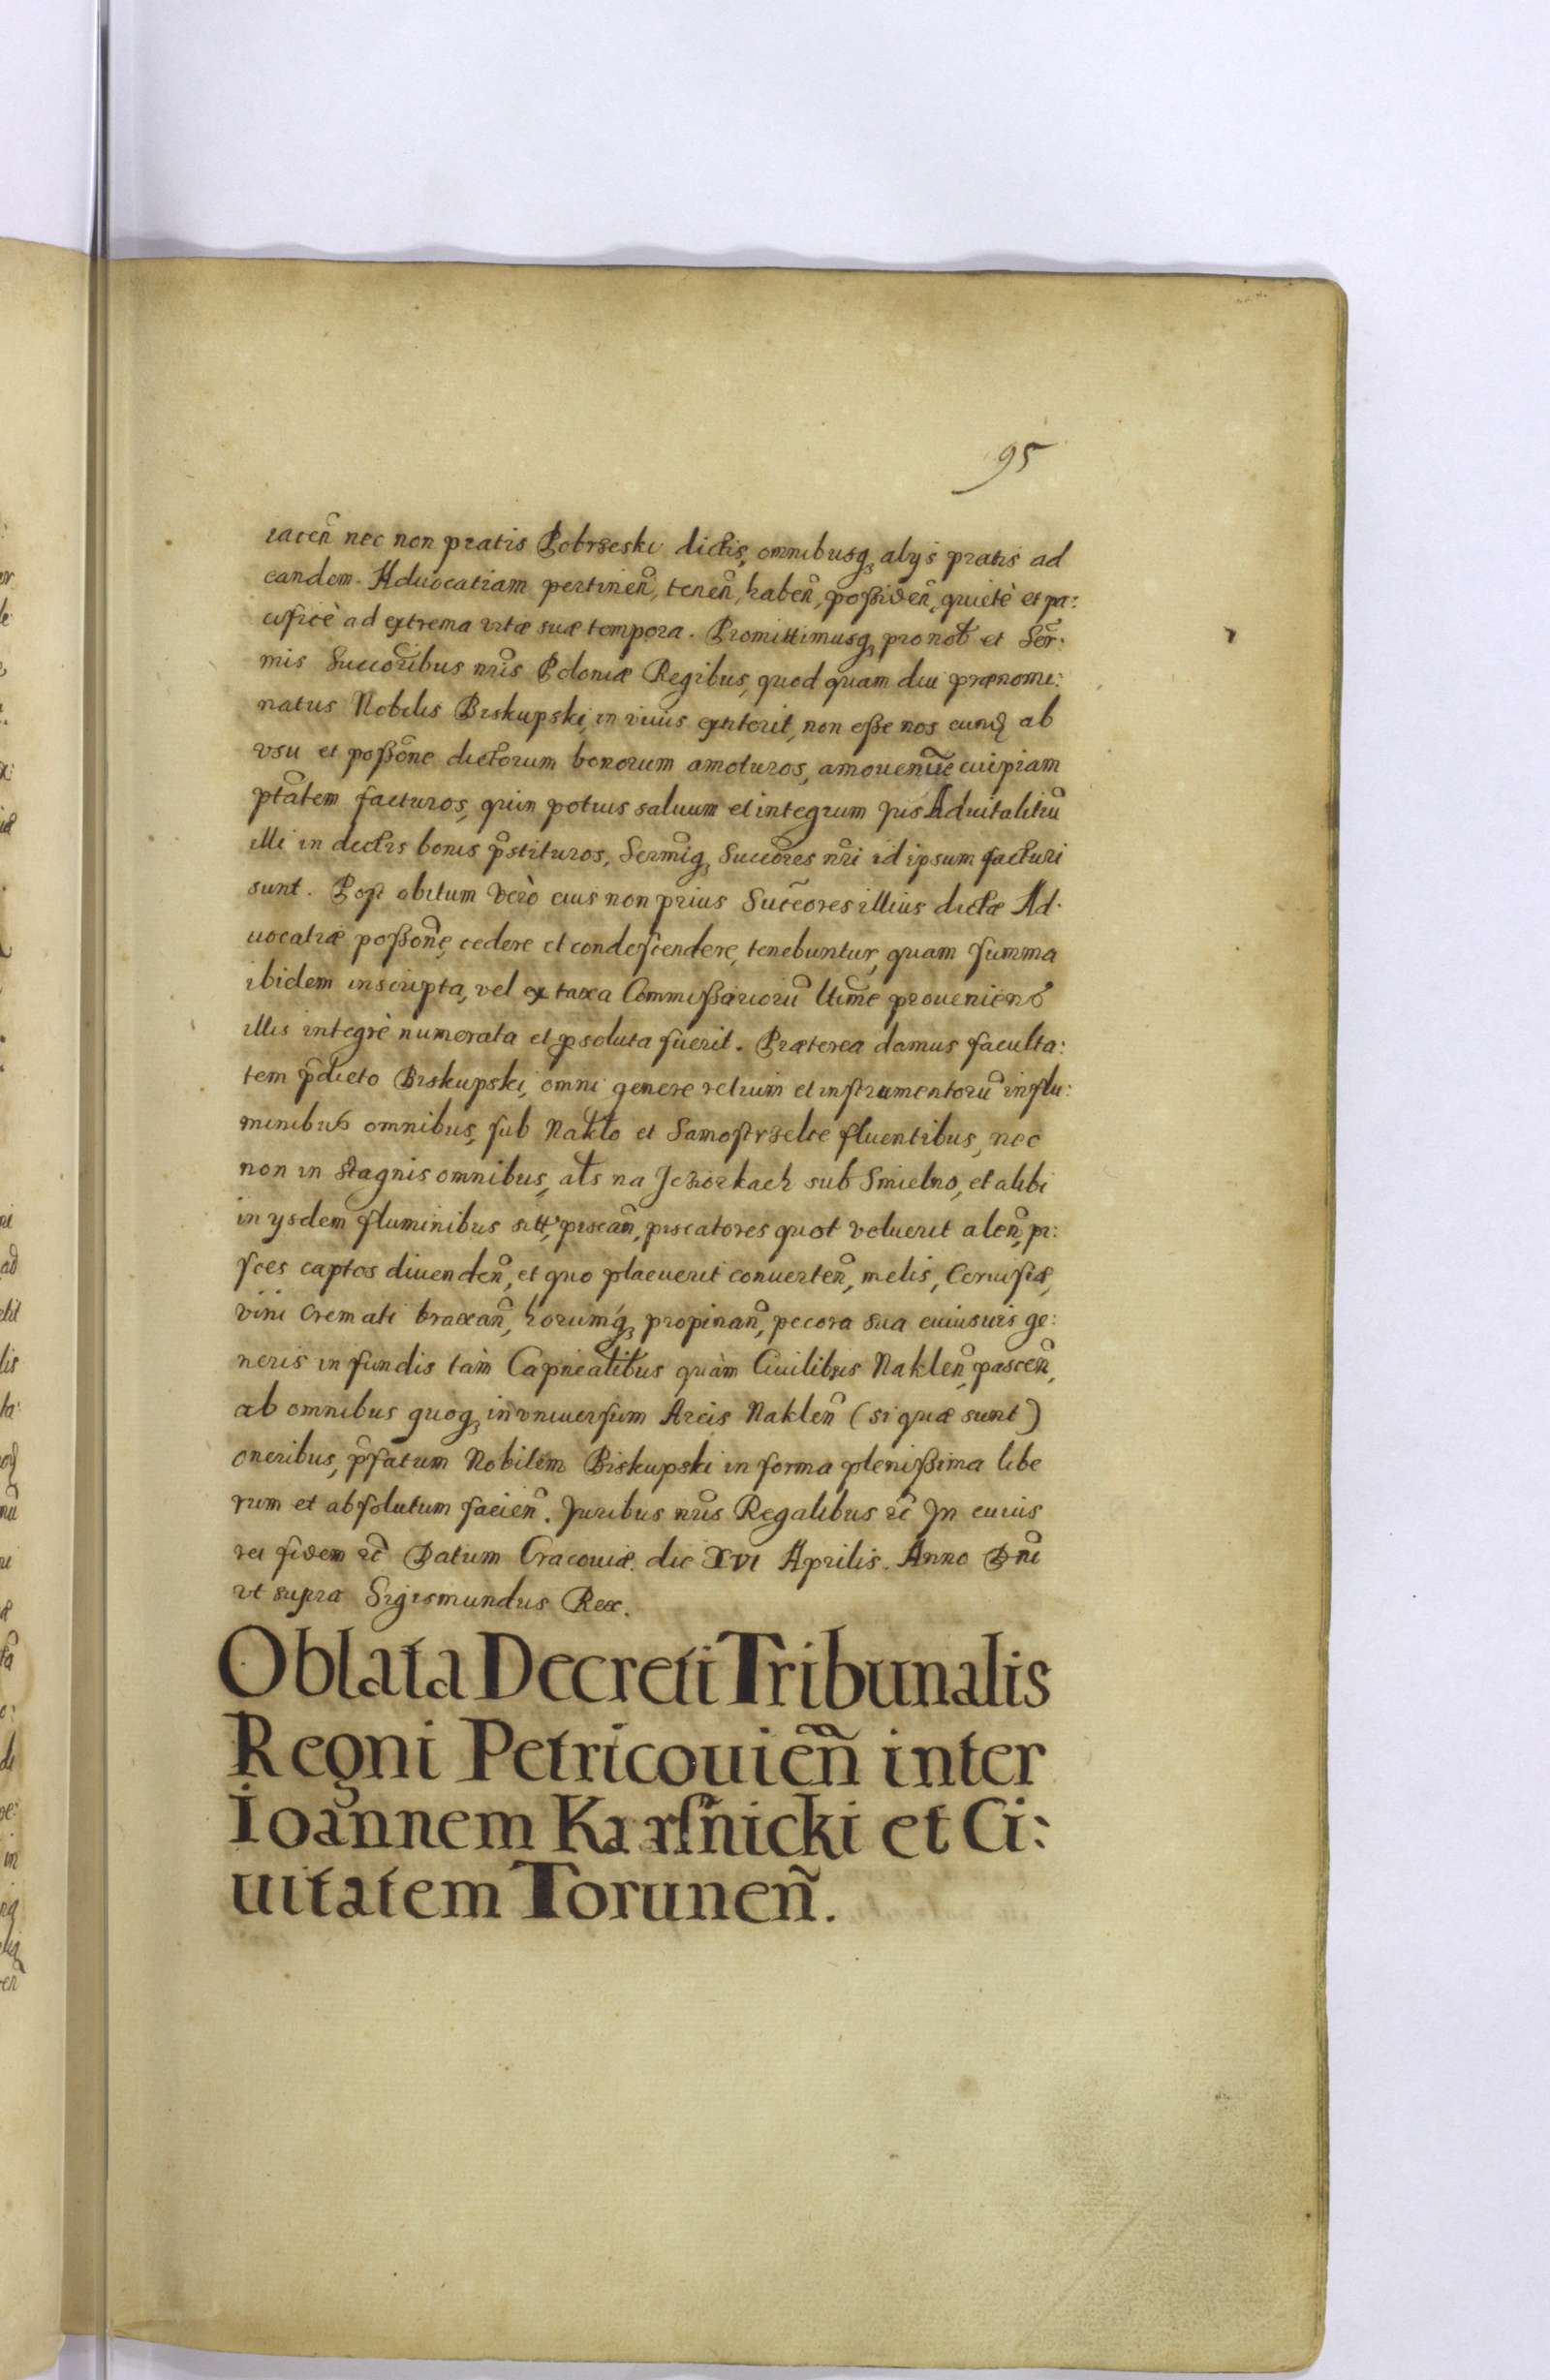 95
iaceñ nec non pratis Pobrzeski dictis, omnibusq₃ alys pratis ad
eandem Aduocatiam pertineñ, teneñ, habeñ, poßideñ, quietè et pa:
cificè ad extrema vitæ suæ tempora. Promittimusq₃ pro nob et Ser:
mis Succoribus nris Poloniæ Regibus, quod quam diu prænomi:
natus Nobilis Biskupski in viuis extiterit, non eße nos eund ab
vsu et poßone dictorum bonorum amoturos, amouenue cuipiam
ptatem facturos, quin potius saluum et integrum Jus Aduitalitiũ
illi in dictis bonis pstituros, Sermiq₃ Succores nri id ipsum facturi
sunt. Post obitum verò eius non prius Succores illius dictæ Ad:
uocatiæ poßone cedere et condescendere tenebuntur, quam summa
ibidem inscripta, vel ex taxa Commißariorũ Ultime proueniens
illis integrè numerata et psoluta fuerit. Præterea damus faculta:
tem pdicto Biskupski, omni genere retium et instrumentorũ in flu:
minibus omnibus, sub Nakło et Samostrzelce fluentibus, nec
non in stagnis omnibus, als na Jeziorkach sub Smielno, et alibi
in ysdem fluminibus sitt, piscañ, piscatores quot voluerit aleñ, pi:
sces captos diuendeñ, et quo placuerit conuerteñ, melis, Ceruisiæ,
vini cremati braxañ, horumq́₃ propinañ, pecora sua cuiusuis ge:
neris in fundis tàm Capnealibus quàm Ciuilibus Nakleñ pasceñ,
ab omnibus quoq₃ in vniuersum Arcis Nakleñ (si quæ sunt)
oneribus, pfatum Nobilem Biskupski in forma plenißima libe
rum et absolutum facieñ. Juribus nris Regalibus rc̃ In cuius
rei fidem rc̃ Datum Cracouiæ. die XVI Aprilis. Anno Dñi
vt supra Sigismundus Rex.
Oblata Decreti Tribunalis
Regni Petricouieñ inter
Ioannem Karsnicki et Ci:
uitatem Toruneñ.